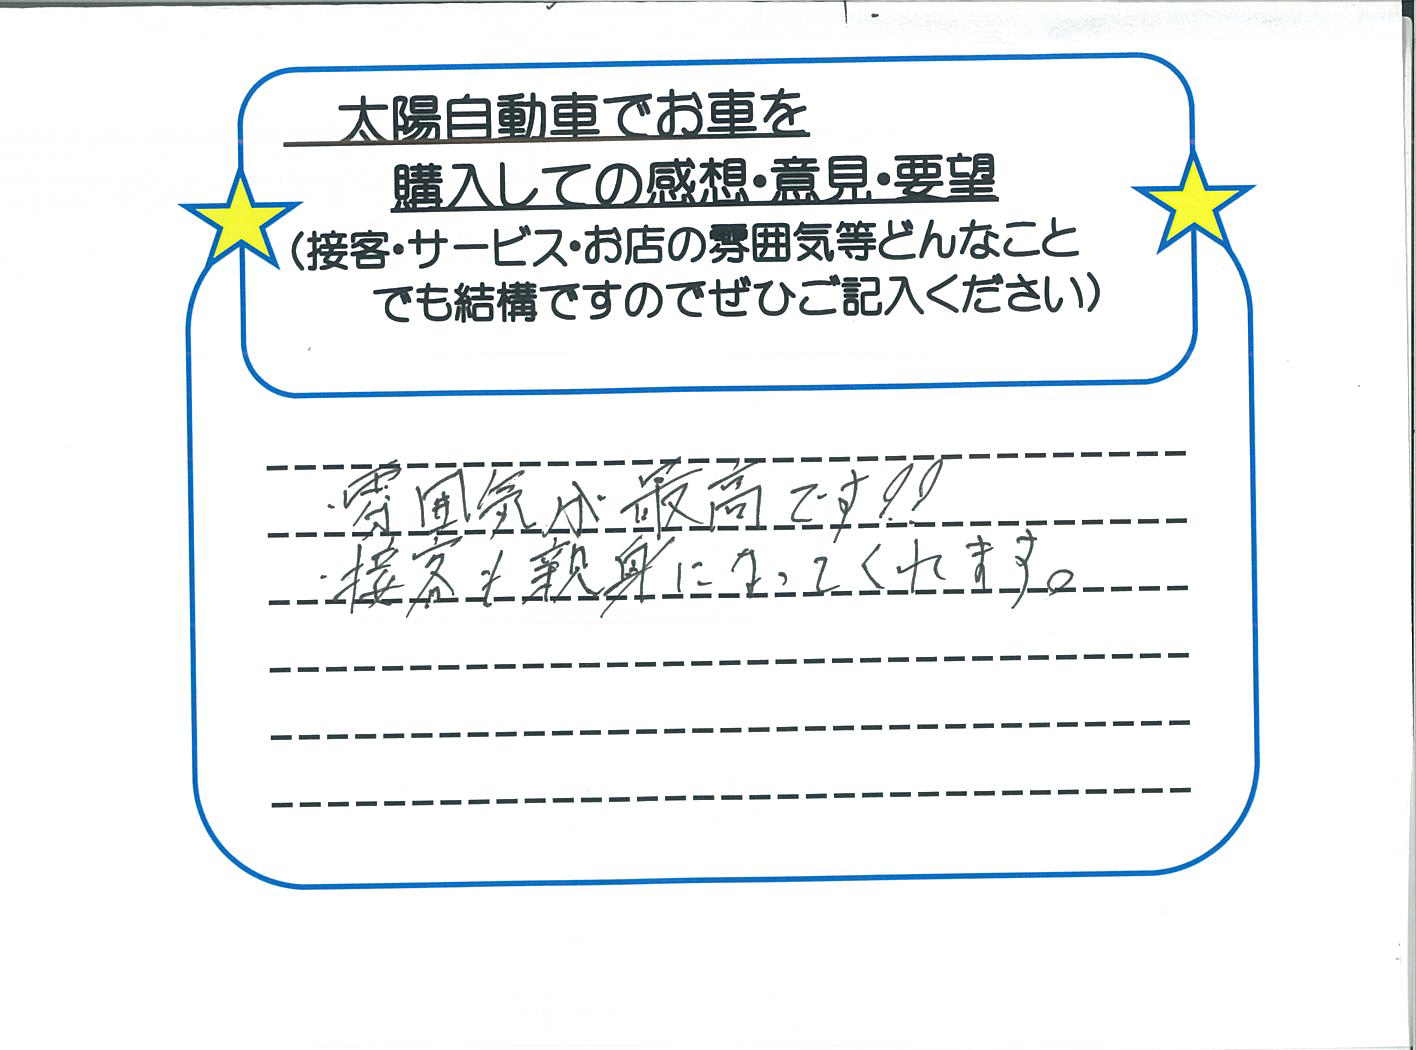 太陽自動車でお車を
購入しての感想・意見・要望
(接客・サービス・お店の雰囲気等どんなこと
でも結構ですのでぜひご記入ください)
・雰囲気が最高です!!
・接客も親身になってくれます。